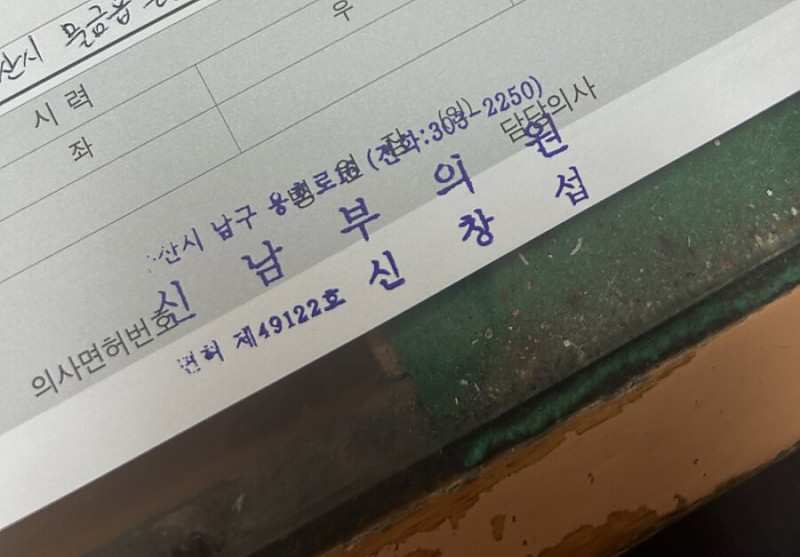 산시 물금읍
우
시 력
좌
산시 남구 용호로 (전화:305-2250)
병 원 장 (인) 담당의사
신 남 부 의 원
의사면허번호
면허 제49122호 신 창 섭